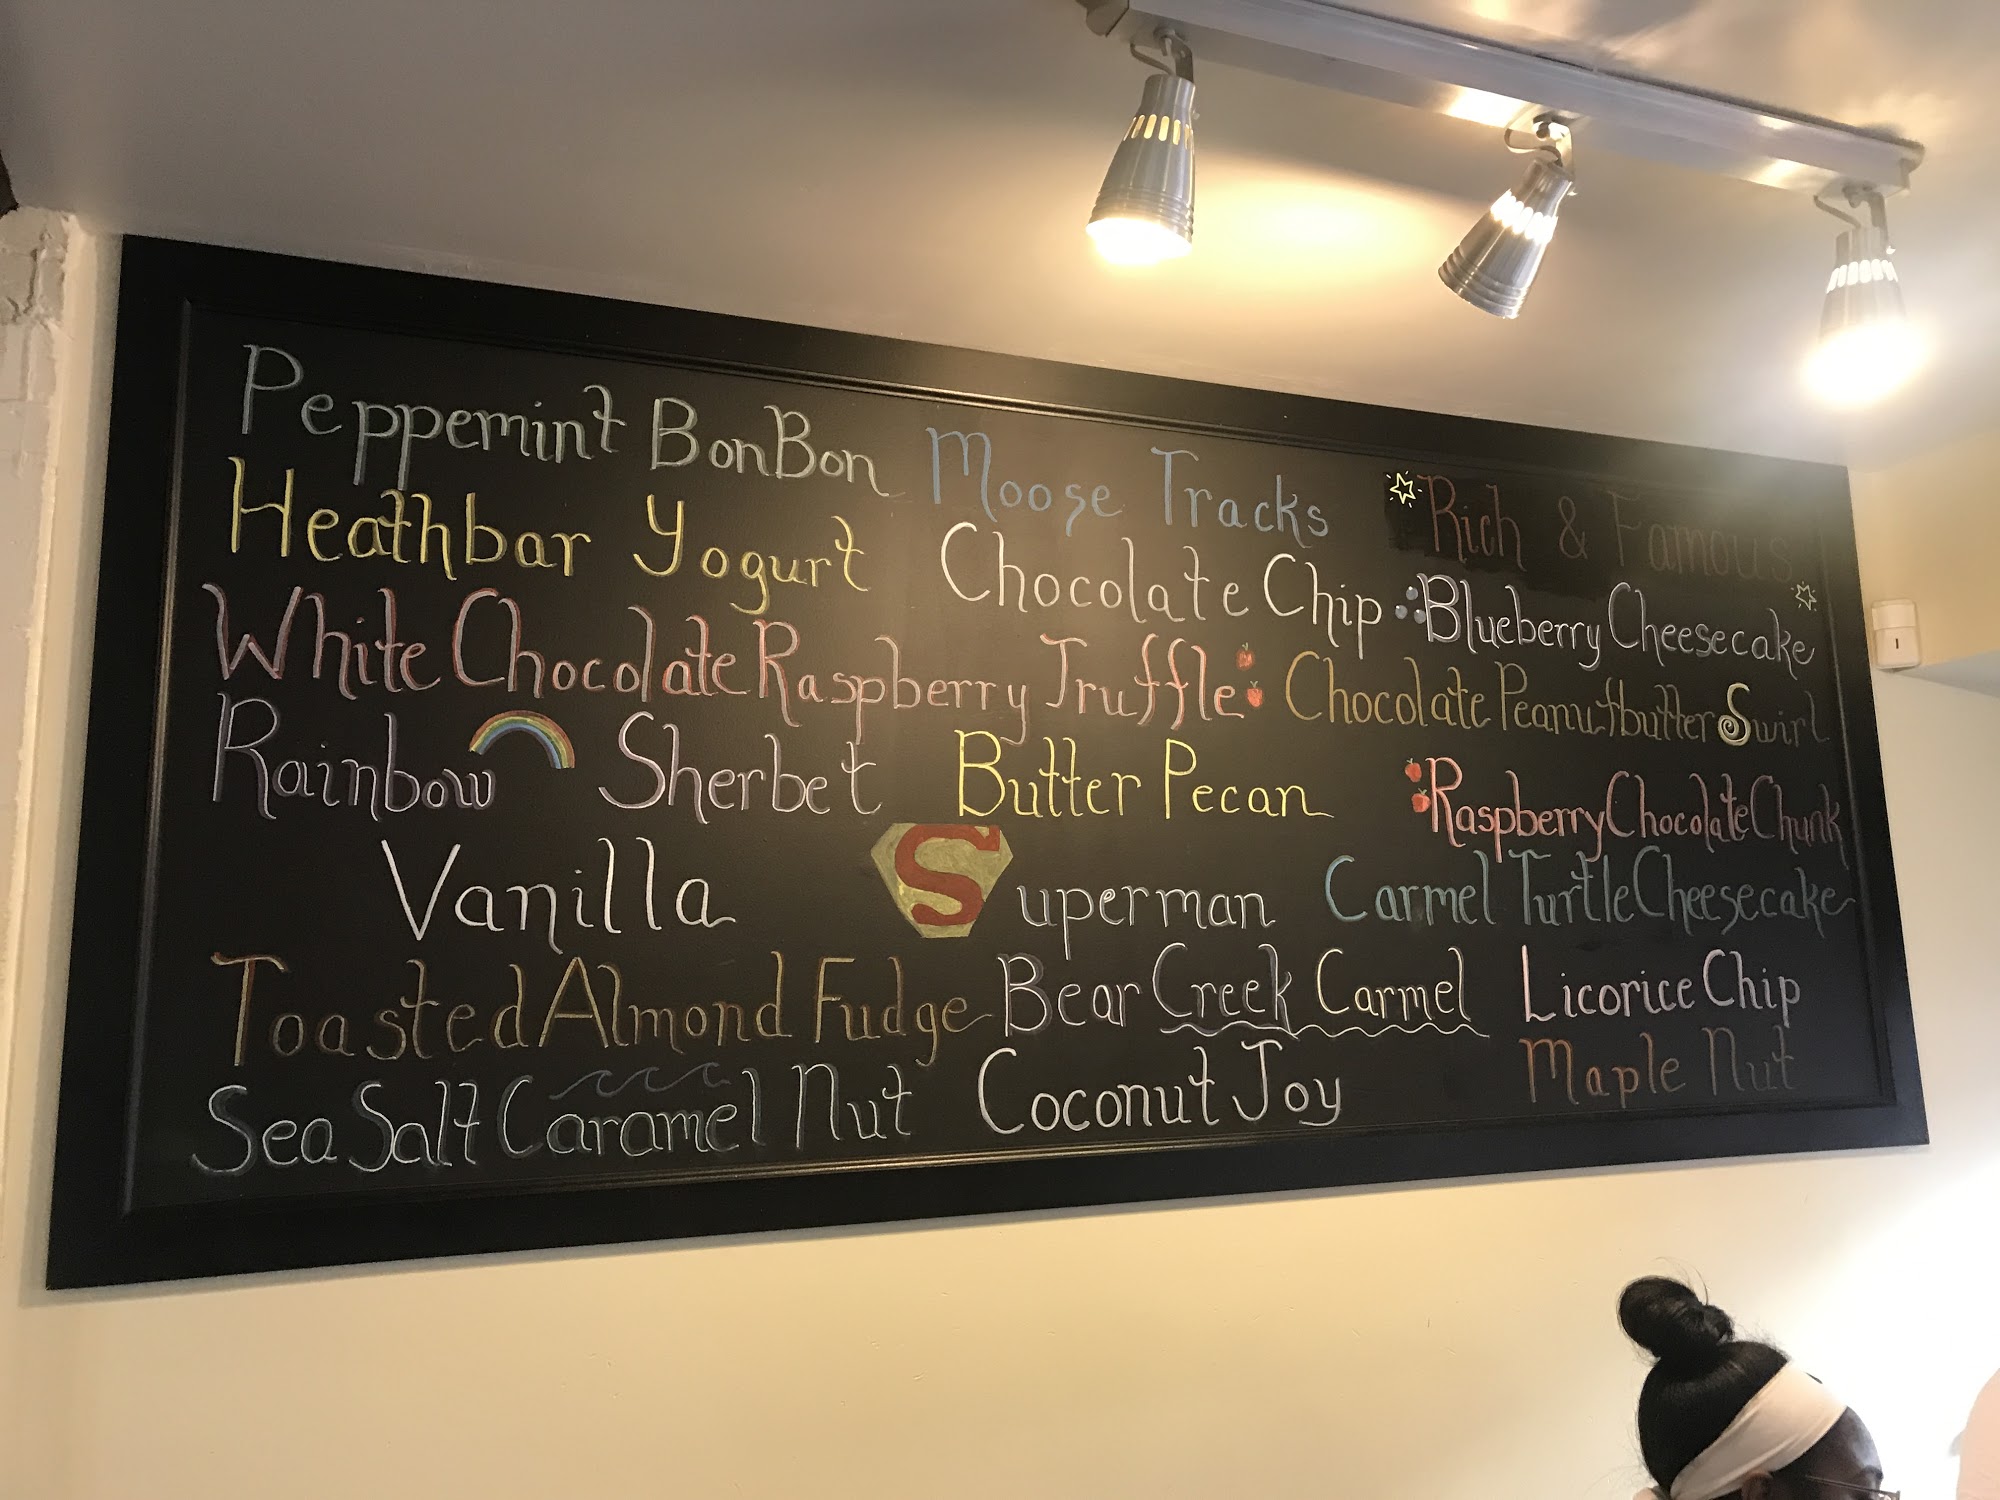 Peppermint BonBon Moose Tracks Rich & Famous
Heathbar Yogurt Chocolate Chip Blueberry Cheesecake
White Chocolate Raspberry Truffle Chocolate Peanutbutter Swirl
Rainbow Sherbet Butter Pecan Raspberry Chocolate Chunk
Vanilla Superman Carmel Turtle Cheesecake
Toasted Almond Fudge Bear Creek Carmel Licorice Chip
Sea Salt Caramel Nut Coconut Joy Maple Nut